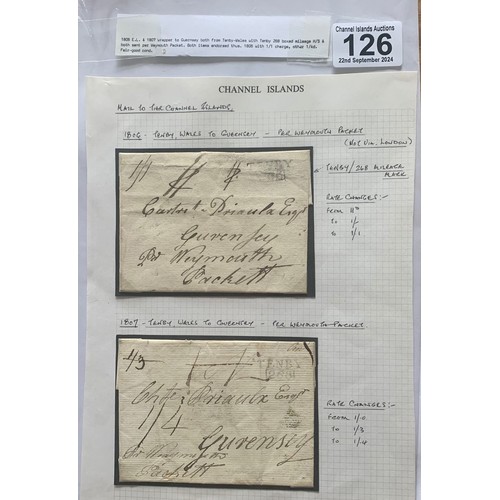 1806 E.L. & 1807 wrapper to Guernsey both from Tenby-Wales with Tenby 268 boxed mileage H/S &
both sent per Weymouth Packet. Both items endorsed thus. 1806 with 1/1 charge, other 1/4d.
Fair-good cond.
Channel Islands Auctions
126
22nd September 2024
CHANNEL ISLANDS
MAIL TO THE CHANNEL ISLANDS.
1806 - TENBY, WALES TO GUERNSEY - PER WEYMOUTH PACKET
(NOT VIA LONDON)
TENBY/268 MILEAGE
MARK
RATE CHANGES:-
FROM 11D
TO 1/-
to 1/1
1/1
Priaula Esqr
Gurensey
Pr Weymouth
Packett
1807 - TENBY, WALES TO GUERNSEY - PER WEYMOUTH PACKET
1/3
TENBY
Priaux Esqr
1/4
Gurensey
Pr Weymouth
Packett
RATE CHANGES:-
FROM 1/-
TO 1/3
TO 1/4